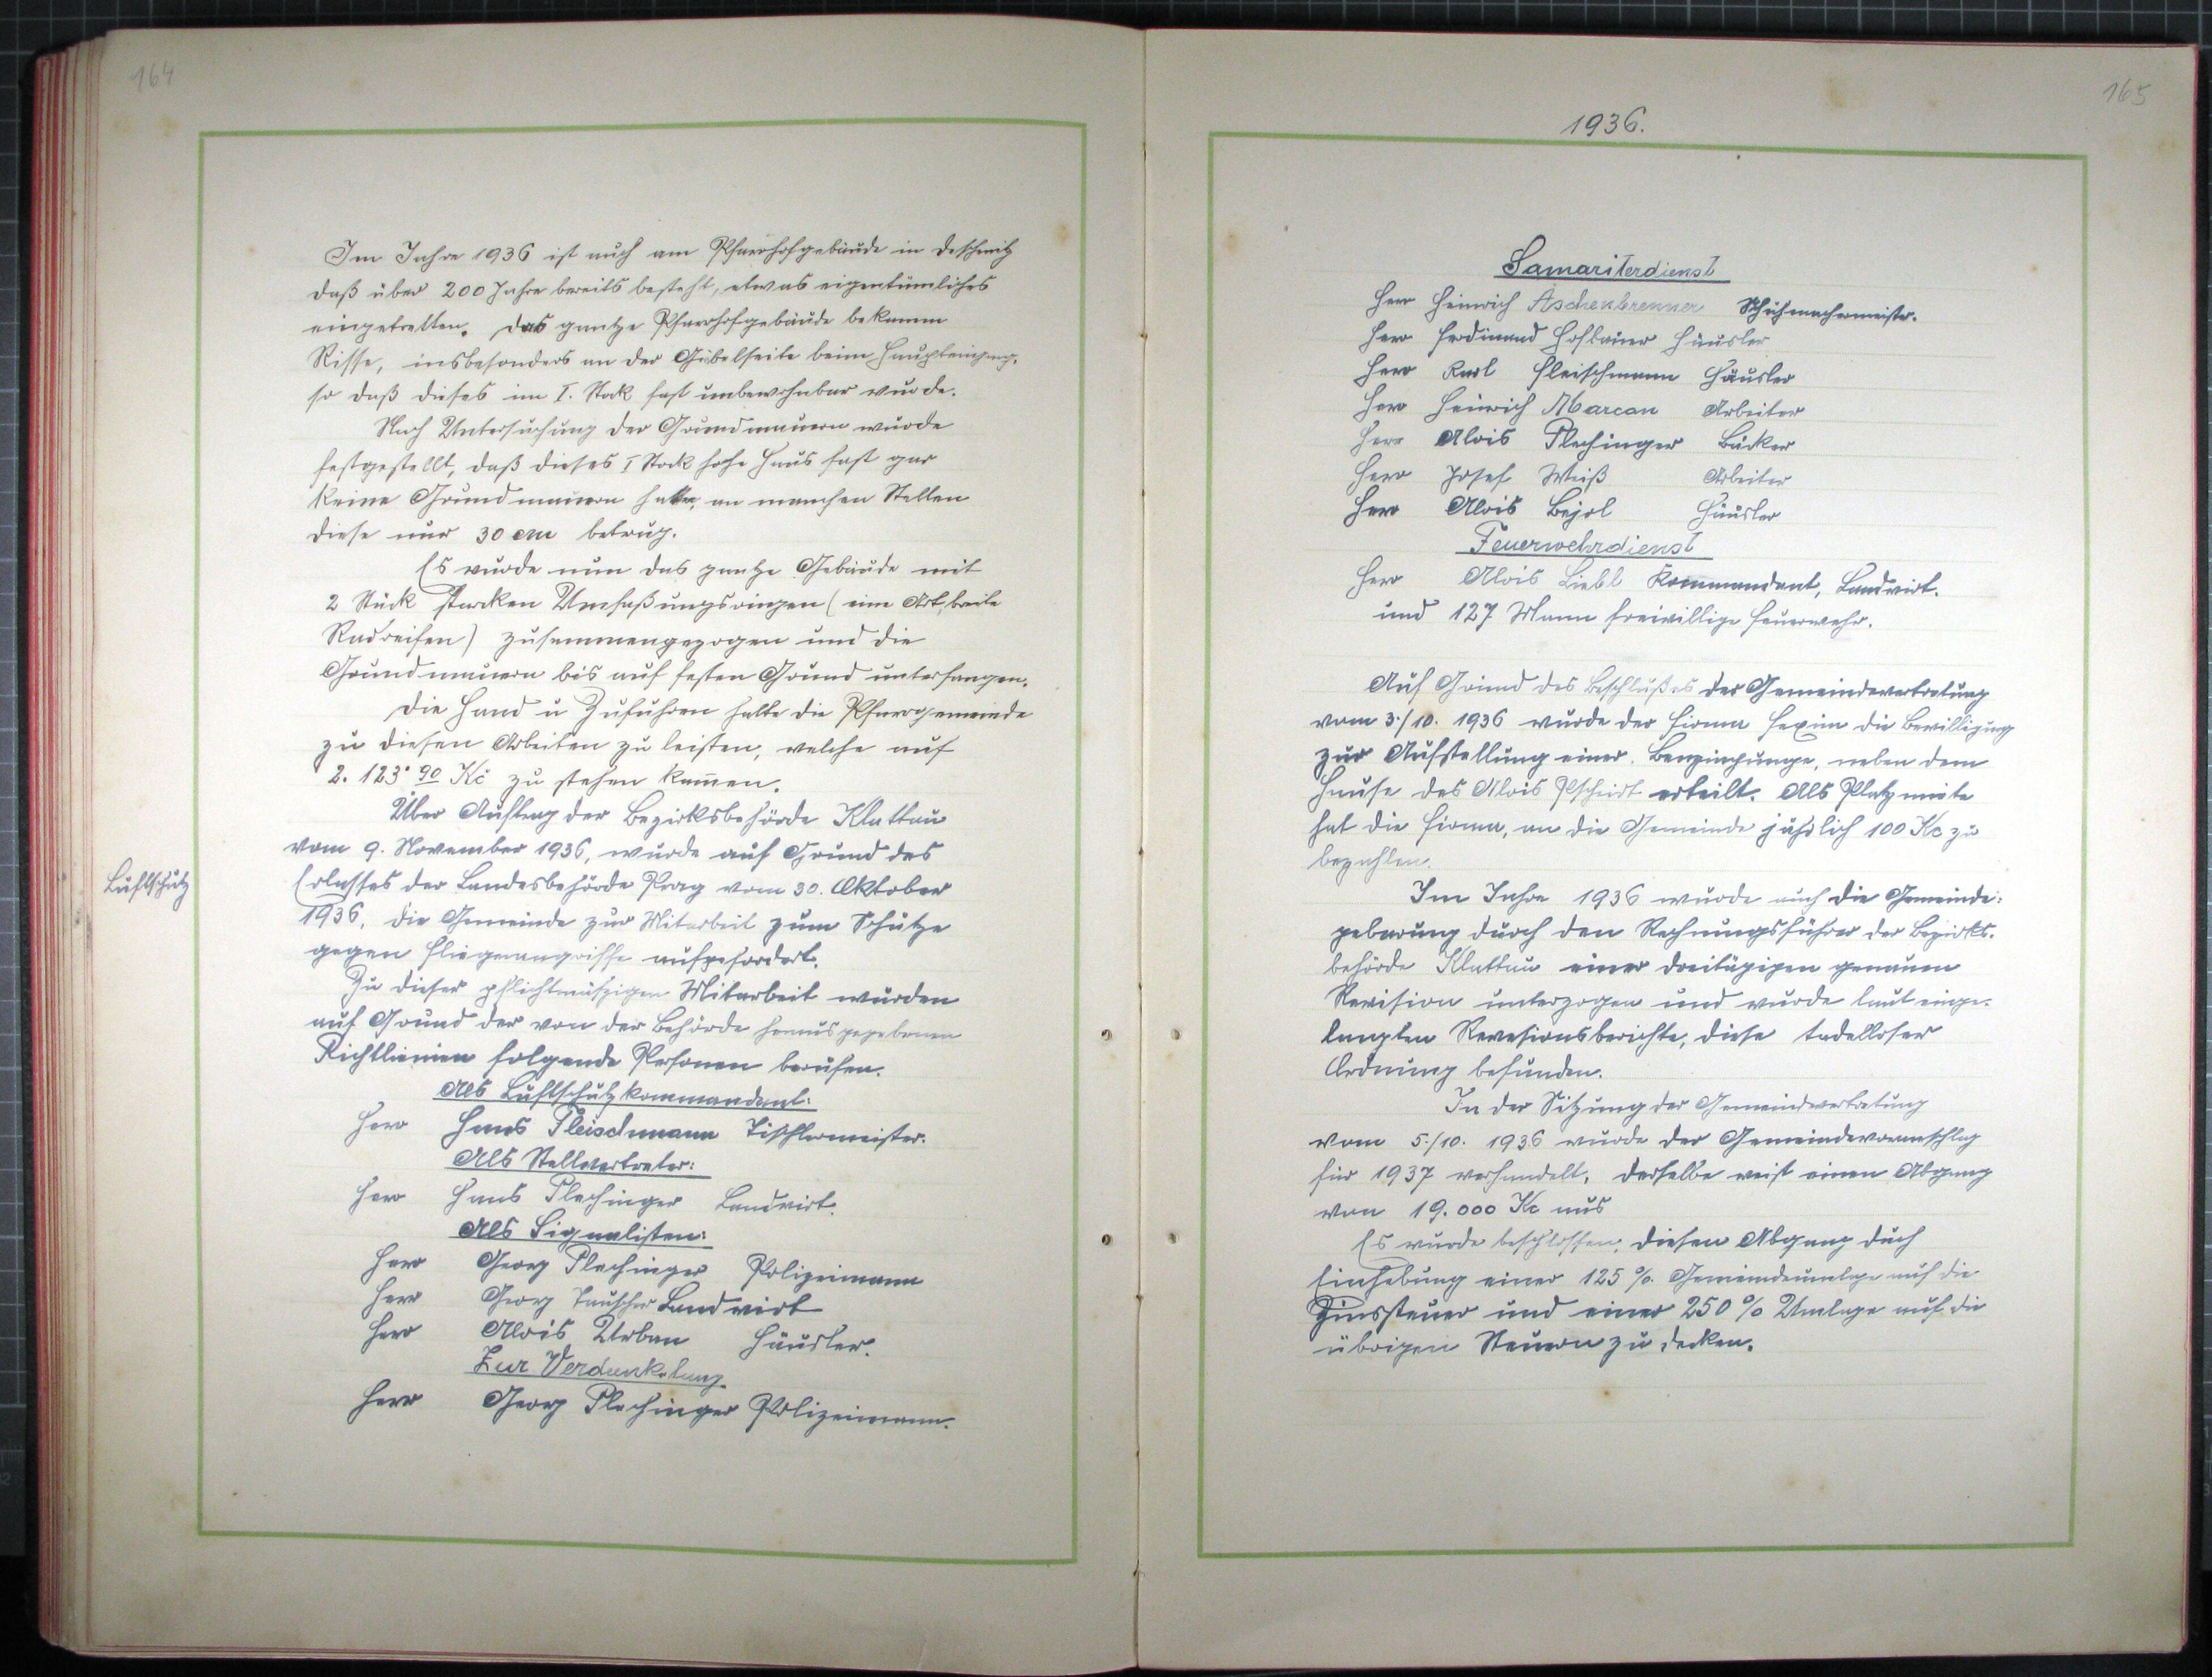 164
Im Jahre 1936 ist auch am Pfarrhofgebäude in Deschenitz
daß über 200 Jahre bereits besteht, etwas eigentümliches
eingetretten. Das gantze Pfarrhofgebäude bekamm
Risse, insbesonders an der Giebelseite beim Haupteingang,
so daß dieses im I. Stock fast unbewohnbar wurde.
Nach Untersuchung der Grundmauern wurde
festgestellt, daß dieses I Stock hohe Haus fast gar
keine Grundmauern hatte, an manchen Stellen
diese nur 30 cm betrug.
Es wurde nun das gantze Gebäude mit
2 Stück starken Umfaßungsringen (eine Art, breite
Radreifen) zusammengezogen und die
Grundmauern bis auf festen Grund unterfangen.
Die Hand u Zufuhren hatte die Pfarrgemeinde
zu diesen Arbeiten zu leisten, welche auf
2. 123·90 Kč zu stehen kamen.
Über Auftrag der Bezirksbehörde Klattau
vom 9. November 1936, wurde auf Grund des
Luftschutz
Erlasses der Landesbehörde Prag vom 30. Oktober
1936, die Gemeinde zur Mitarbeit zum Schutze
gegen Fliegerangriffe aufgefordert.
Zu dieser pflichtmäßigen Mitarbeit wurden
auf Grund der von der Behörde herausgegebenen
Richtlienien folgende Personen berufen.
Als Luftschutzkommandant:
Herr Hans Fleischmann Tischlermeister.
Als Stellvertreter:
Herr Hans Plechinger Landwirt.
Als Signalisten:
Herr Georg Plechinger Polizeimann
Herr Georg Tauscher Landwirt
Herr Alois Urban Häusler.
Zur Verdunkelung
Herr Georg Plechinger Polizeimann.
165
1936.
Samariterdienst
Herr Heinrich Aschenbrenner Schuhmachermeister.
Herr Ferdinand Hofbauer Häusler
Herr Karl Fleischmann Häusler
Herr Heinrich Marcan Arbeiter
Herr Alois Plechinger Bäcker
Herr Josef Weiß Arbeiter
Herr Alois Bejol Häusler
Feuerwehrdienst
Herr Alois Liebl Kommandant, Landwirt.
und 127 Mann freiwillige Feuerwehr.
Auf Grund des Beschlußes der Gemeindevertretung
vom 3./10. 1936 wurde der Firma die Bewilligung
zur Aufstellung einer Benzinpumpe, neben dem
Hause des Alois Pscheidt erteilt. Als Platzmiete
hat die Firma, an die Gemeinde jährlich 100 Kc zu
bezahlen.
Im Jahre 1936 wurde auch die Gemeinde:
gebarung durch den Rechnungsführer der Bezirks-
behörde Klattau einer dreitägigen genauen
Revision unterzogen und wurde laut einge-
langten Revesionsberichte, diese tadelloser
Ordnung befunden.
In der Sitzung der Gemeindevertretung
vom 5./10. 1936 wurde der Gemeindevoranschlag
für 1937 verhandelt, derselbe weist einen Abgang
von 19.000 Kc aus
Es wurde beschlossen, diesen Abgang duch
Einhebung einer 125 %. Gemeindeumlage auf die
Zinssteuer und einer 250 % Umlage auf die
übrigen Steuern zu decken.